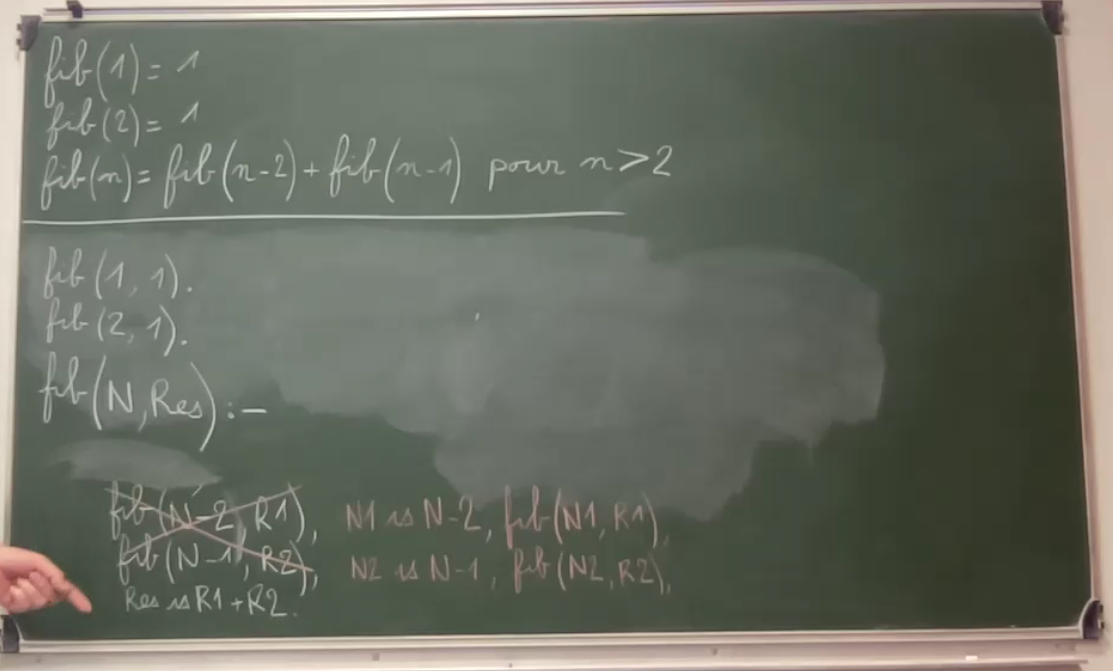 fib(1) = 1
fib(2) = 1
fib(n) = fib(n-2) + fib(n-1) pour n > 2
fib(1, 1).
fib(2, 1).
fib(N, Res) :-
fib(N-2, R1), N1 is N-2, fib(N1, R1),
fib(N-1, R2), N2 is N-1, fib(N2, R2),
Res is R1+R2.